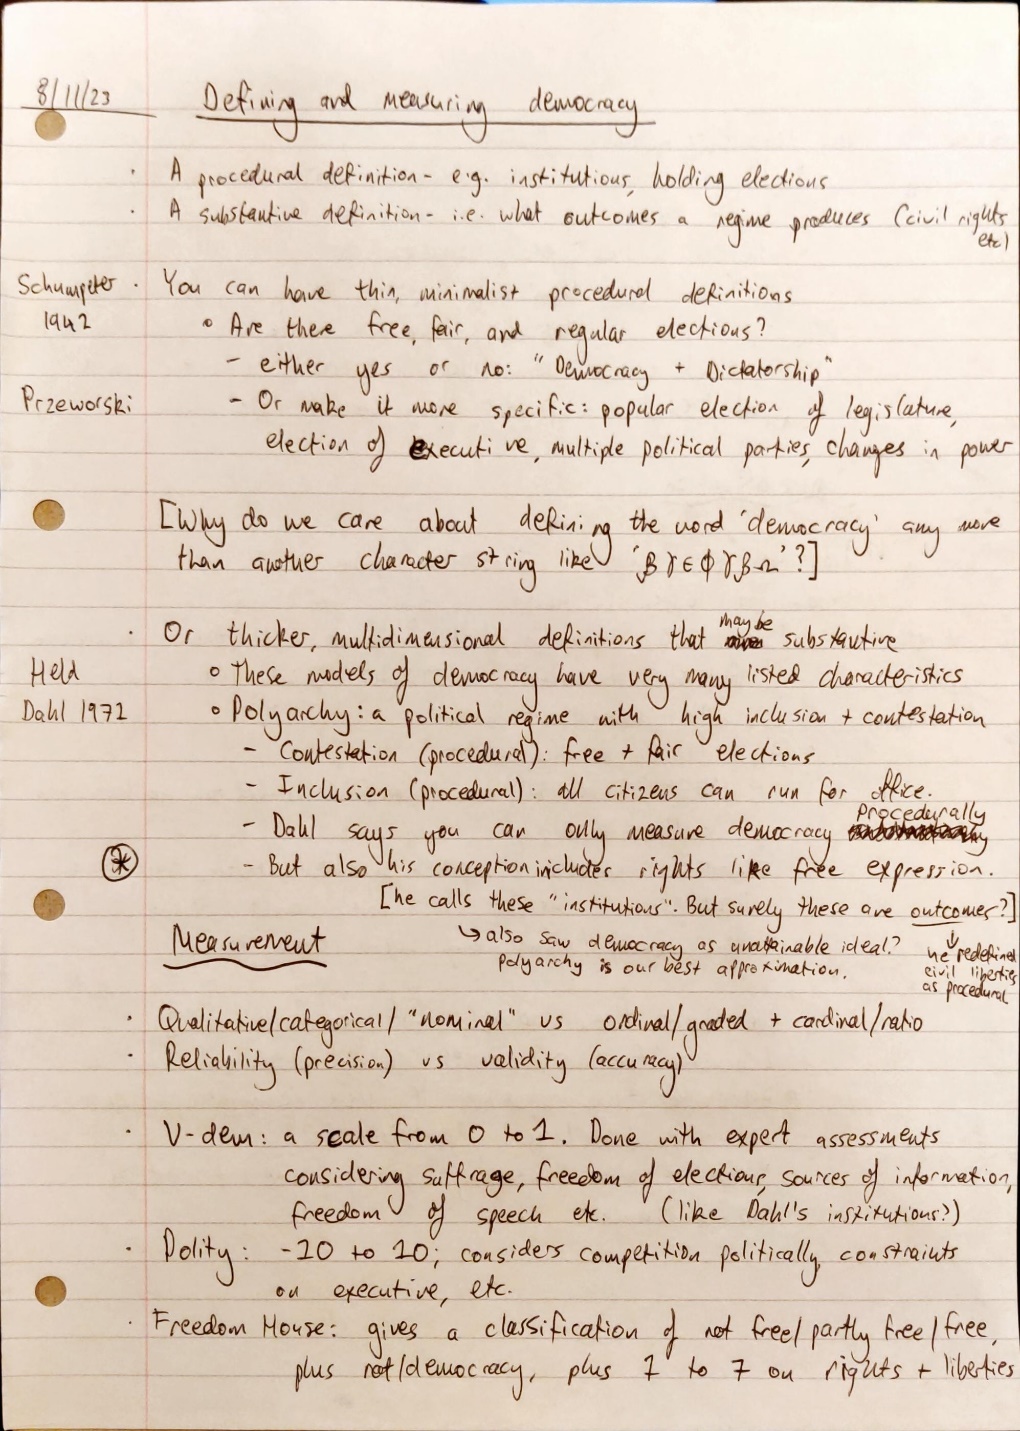 8/11/23 Defining and measuring democracy
· A procedural definition - e.g. institutions, holding elections
· A substantive definition - i.e. what outcomes a regime produces (civil rights
etc)
Schumpeter · You can have thin, minimalist procedural definitions
1942 ∘ Are there free, fair, and regular elections?
- either yes or no: "Democracy + Dictatorship"
Przeworski - Or make it more specific: popular election of legislature,
election of executive, multiple political parties, changes in power
[Why do we care about defining the word 'democracy' any more
than another character string like 'βγєφγβΩ'?]
· Or thicker, multidimensional definitions that maybe substantive
Held ∘ These models of democracy have very many listed characteristics
Dahl 1971 ∘ Polyarchy: a political regime with high inclusion + contestation
- Contestation (procedural): free + fair elections
- Inclusion (procedural): all citizens can run for office.
- Dahl says you can only measure democracy procedurally
* - But also his conception includes rights like free expression.
[he calls these "institutions". But surely these are outcomes?]
↳ also saw democracy as unattainable ideal?
polyarchy is our best approximation.
↓
he redefined
civil liberties
as procedural
Measurement
· Qualitative/categorical/"nominal" vs ordinal/graded + cardinal/ratio
· Reliability (precision) vs validity (accuracy)
· V-dem: a scale from 0 to 1. Done with expert assessments
considering suffrage, freedom of elections, sources of information,
freedom of speech etc. (like Dahl's institutions?)
· Polity: -10 to 10; considers competition politically, constraints
on executive, etc.
· Freedom House: gives a classification of not free/partly free/free,
plus not/democracy, plus 1 to 7 on rights + liberties